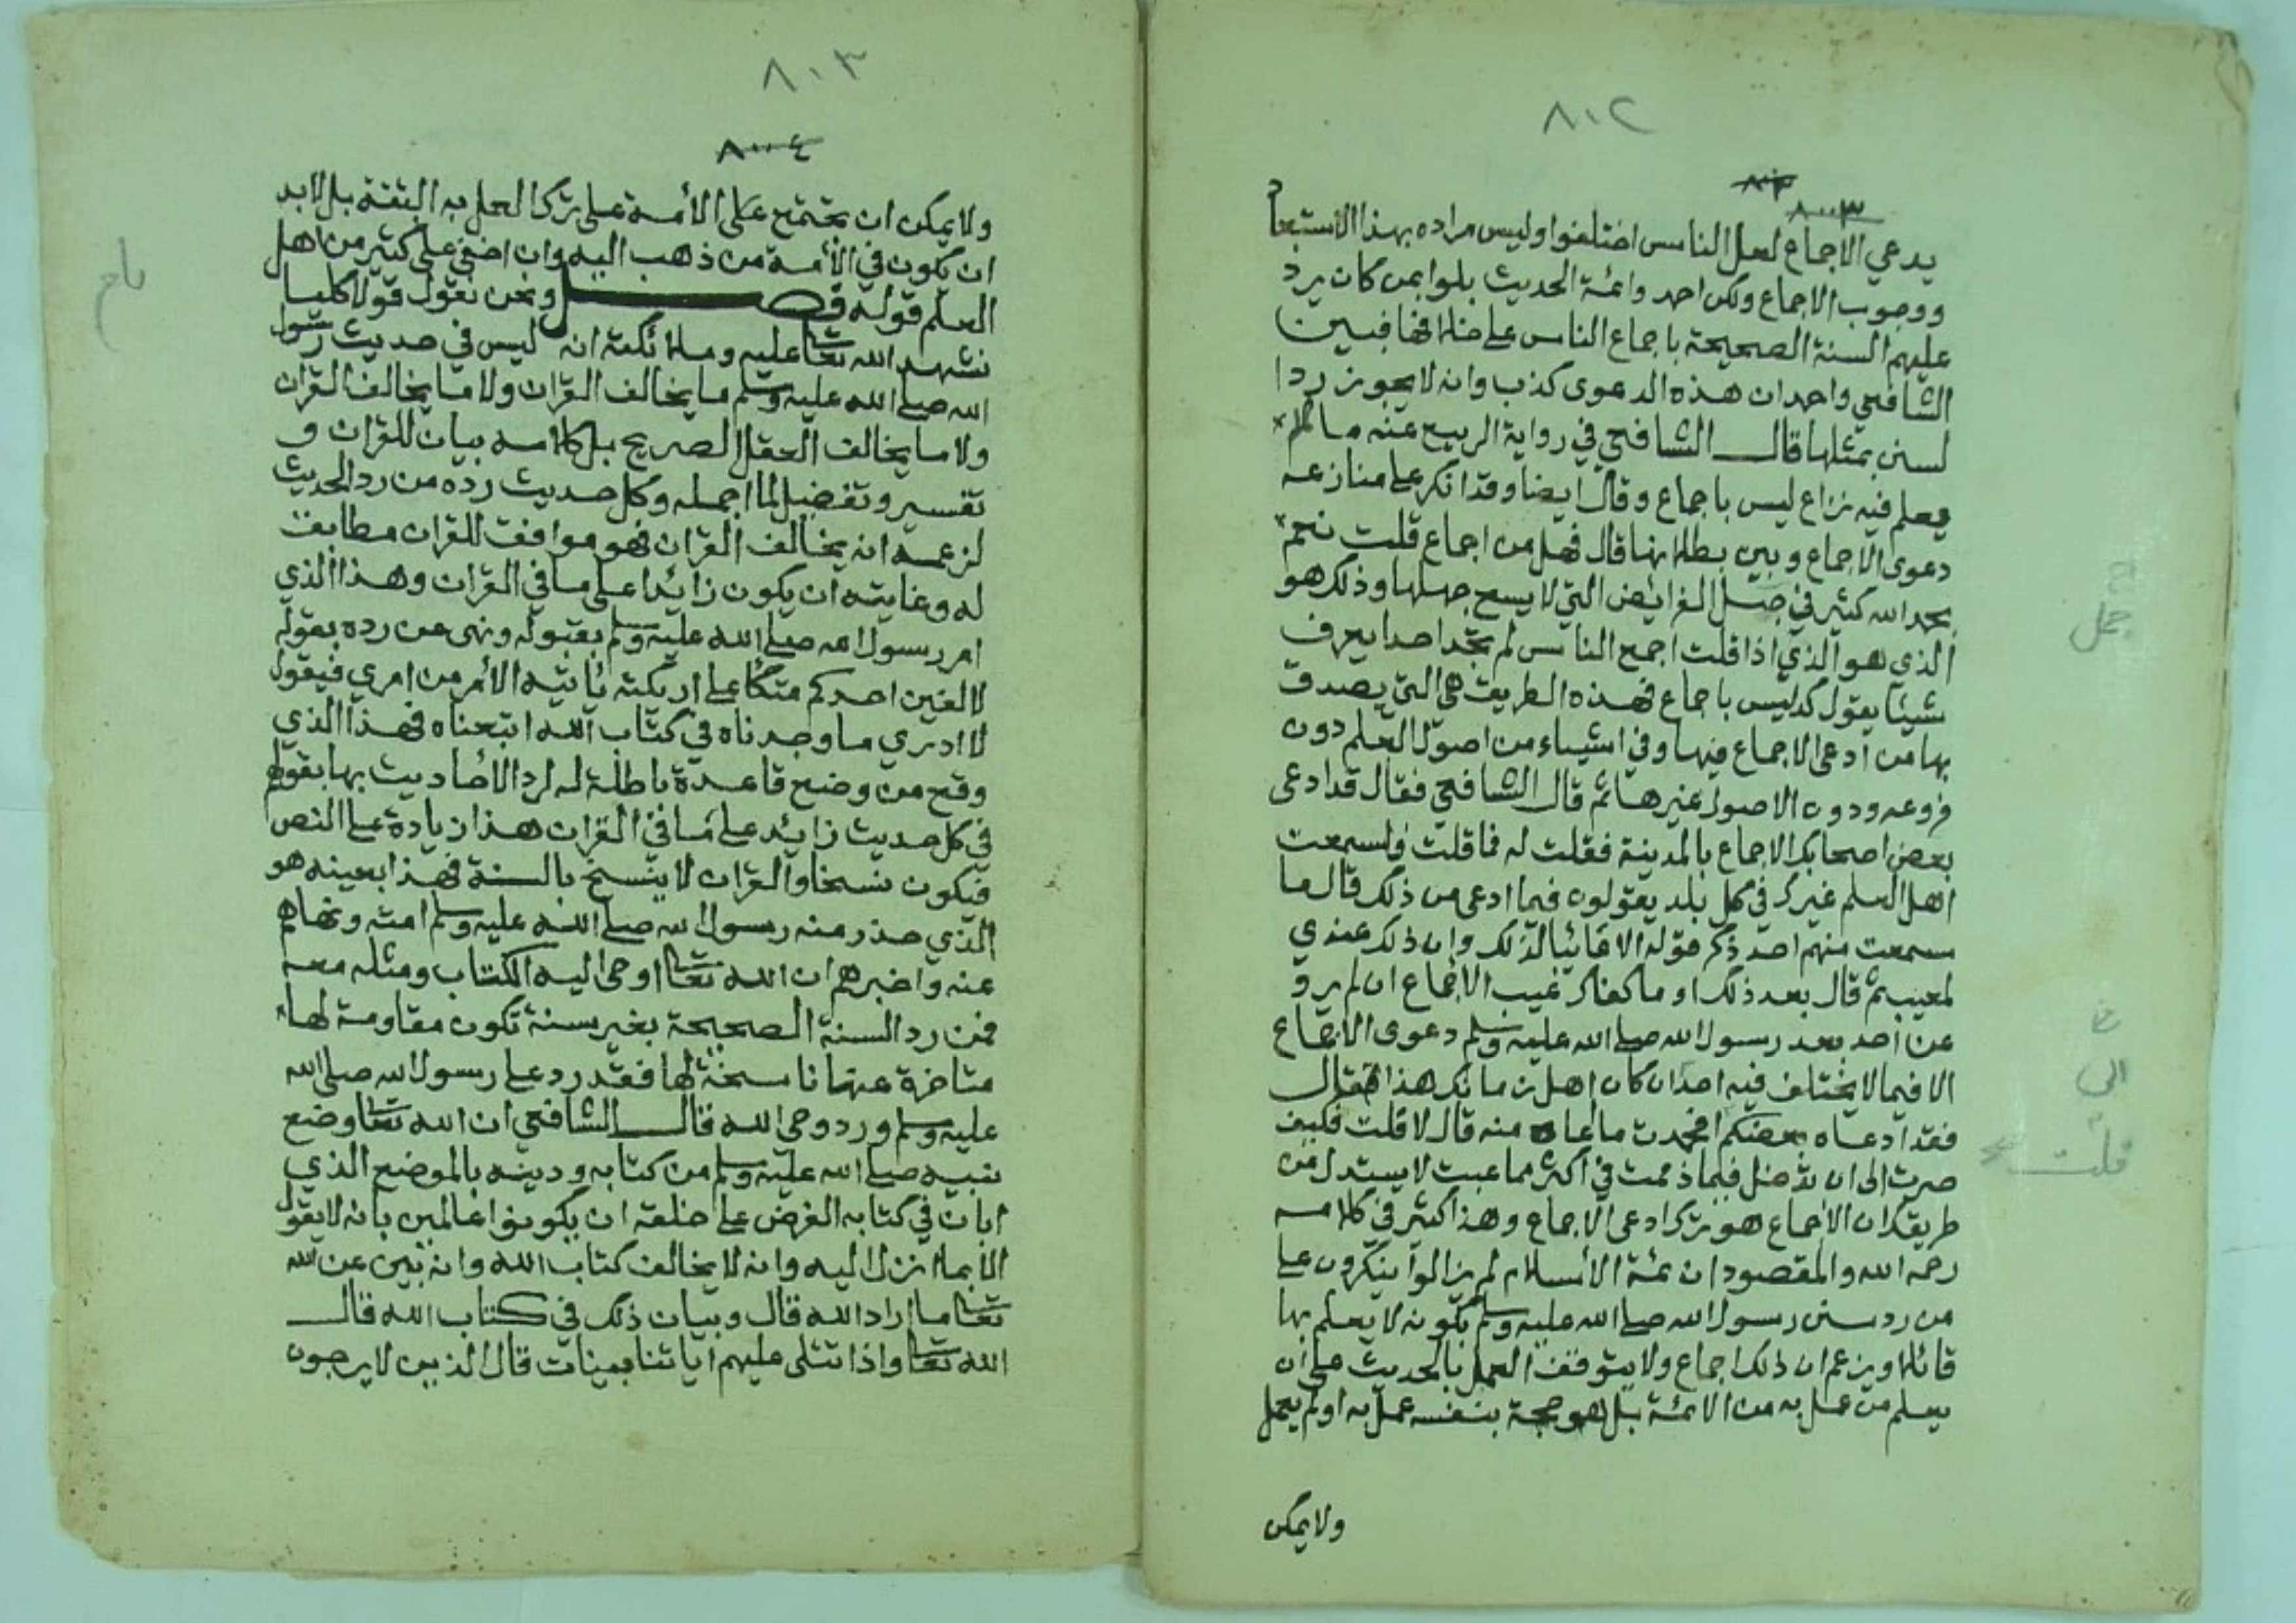 ٨٠٢
٨٠٠٣
يدعي الاجماع لعل الناس اختلفوا وليس مراده بهذا الاستبعاد
ووجوب الاجماع ولكن احمد وائمة الحديث بلوا بمن كان يرد
عليهم السنة الصحيحة باجماع الناس على خلافها فبين
الشافعي واحمد ان هذه الدعوى كذب وانه لا يجوز رد ا
لسنن بمثلها قال الشافعي في رواية الربيع عنه ما لم
يعلم فيه نزاع ليس باجماع وقال ايضا وقد انكر على منازعه
دعوى الاجماع وبين بطلانها قال فهل من اجماع قلت نعم
بحمد الله كثير في جمل الفرائض التي لا يسع جهلها وذلك هو
الذي هو الذي اذا قلت اجمع الناس لم تجد احدا يعرف
شيئا يقول لك ليس باجماع فهذه الطريقة هي التي يصدق
بها من ادعى الاجماع فيها وفي اشياء من اصول العلم دون
فروعه ودون الاصول غيرها ثم قال الشافعي فقال قد ادعى
بعض اصحابك الاجماع بالمدينة فقلت له فما قلت وسمعت
اهل العلم غيرك في كل بلد يقولون فيما ادعى من ذلك قال ما
سمعت منهم احد ذكر قوله الا عائبا لذلك وان ذلك عندي
لمعيب ثم قال بعد ذلك او ما كفاك عيب الاجماع ان لم يرو
عن احد بعد رسول الله صلى الله عليه وسلم دعوى الاجماع
الا فيما لا يختلف فيه احد ان كان اهل زمانك هذا فقال
فقد ادعاه بعضكم افحمدت ما ادعاه منه قال لا قلت فكيف
صرت الى ان تدخل فيما ذممت في اكثر مما عبت لا يستدل من
طريقك ان الاجماع هو ترك ادعى الاجماع وهذا كثير في كلامه
رحمه الله والمقصود ان ئمة الأسلام لم يزالوا ينكرون على
من رد سنن رسول الله صلى الله عليه وسلم بكونه لا يعلم بها
قائلا او يزعم ان ذلك اجماع ولا يتوقف العمل بالحديث على ان
يعلم من عمل به من الائمة بل هو حجة بنفسه عمل به او لم يعمل
ولا يمكن
جمل
الى
قلت
٨٠٣
٨٠٠٤
ولا يمكن ان تجتمع على الأمة على ترك العمل به البتة بل لا بد
ان يكون في الأمة من ذهب اليه وان اخفي على كثير من اهل
العلم قوله فصل ونحن نقول قولا كليا
نشهد الله تعا عليه وملائكته انه ليس في حديث رسول
الله صلى الله عليه وسلم ما يخالف القران ولا ما يخالف القران
ولا ما يخالف العقل الصريح بل كلامه بيان للقران و
تفسير وتفضيل لما اجمله وكل حديث رده من رد الحديث
لزعمه انه يخالف القران فهو موافق للقران مطابق
له وغايته ان يكون زائدا على ما في القران وهذا الذي
امر رسول الله صلى الله عليه وسلم بقبوله ونهى عن رده بقوله
لا الفين احدكم متكأ على اريكته يأتيه الأمر من امري فيقول
لا ادري ما وجدناه في كتاب الله اتبعناه فهذا الذي
وقع من وضع قاعدة باطلة له لرد الأحاديث بها بقولهم
في كل حديث زائد على ما في القران هذا زيادة على النص
فيكون نسخا والقران لا ينسخ بالسنة فهذا بعينه هو
الذي حذر منه رسول الله صلى الله عليه وسلم امته ونهاهم
عنه واخبرهم ان الله تعا اوحى اليه الكتاب ومثله معه
فمن رد السنة الصحيحة بغير سنة تكون مقاومة لها
متاخرة عنها ناسخة لها فقد رد على رسول الله صلى الله
عليه وسلم ورد وحي الله قال الشافعي ان الله تعا وضع
نبيه صلى الله عليه وسلم من كتابه ودينه بالموضع الذي
ابان في كتابه الفرض على خلقه ان يكونوا عالمين بانه لا يقول
الا بما انزل اليه وانه لا يخالف كتاب الله وانه بين عن الله
تعا ما اراد الله قال وبيان ذلك في كتاب الله قال
الله تعا واذا تتلى عليهم اياتنا بينات قال الذين لا يرجون